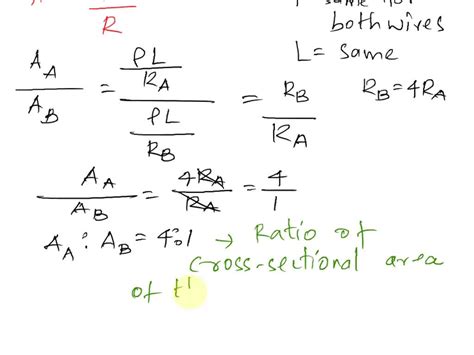 R
both wires
L = same
A_A / A_B = (ρL / R_A) / (ρL / R_B) = R_B / R_A
R_B = 4R_A
A_A / A_B = 4R_A / R_A = 4 / 1
A_A : A_B = 4:1 → Ratio of
cross-sectional area
of th